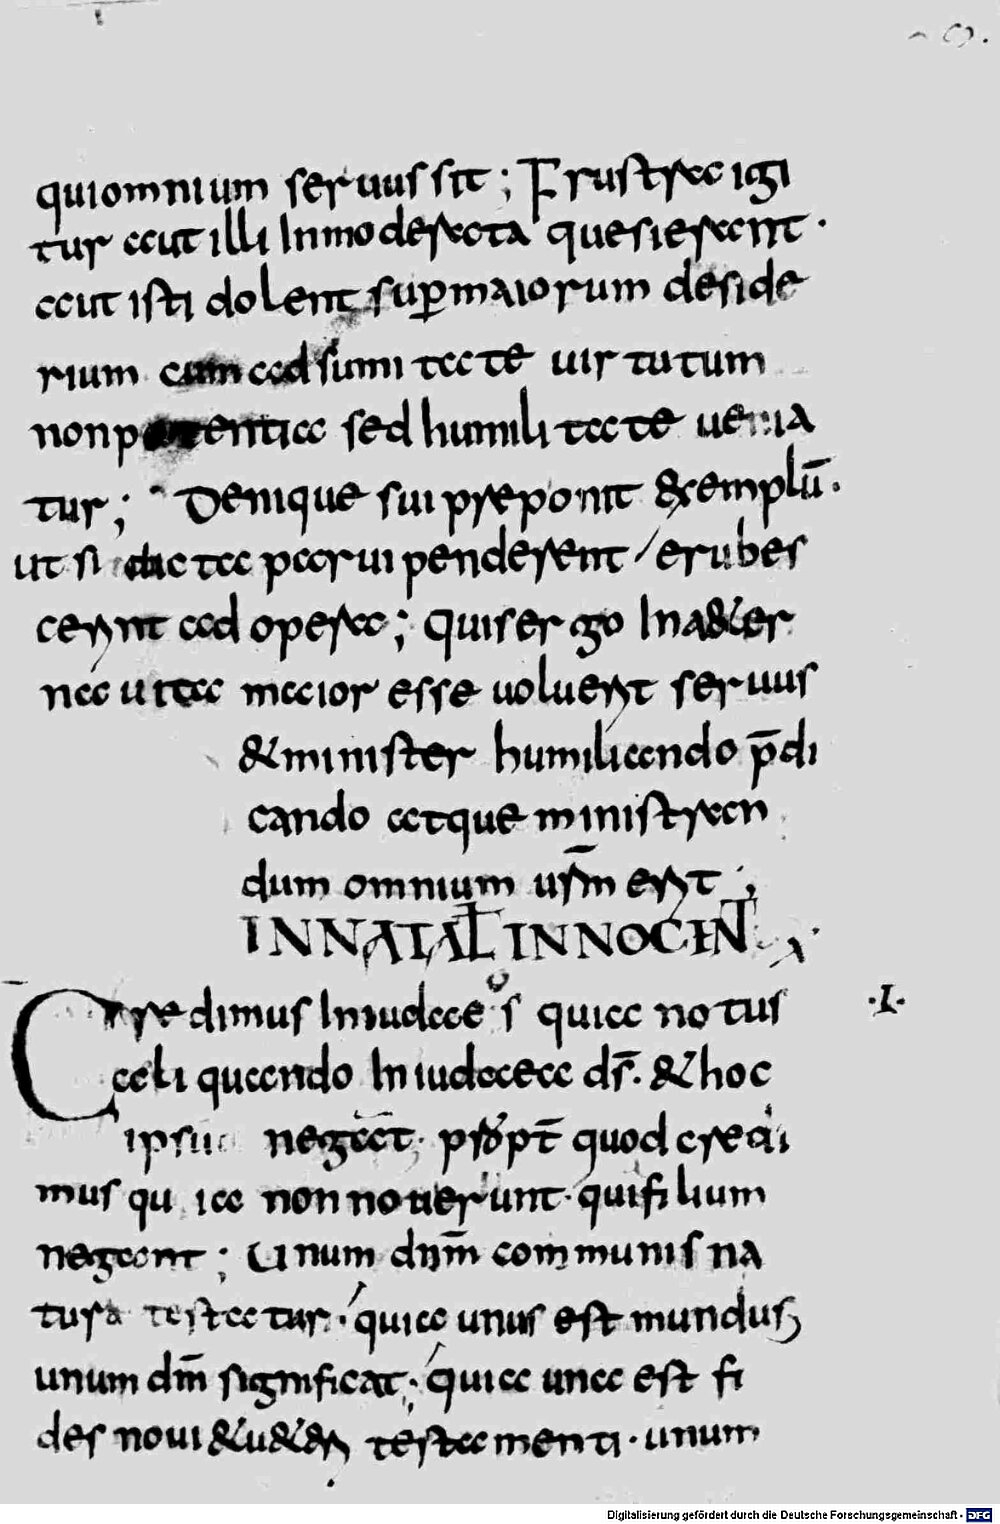 qui omnium seruus sit; Frustra igi
tur aut illi Inmoderata quesierant·
aut isti dolent sup̄ maiorum deside
rium cum ad sumitate uirtutum
non potentia sed humilitate uenia
tur; Denique sui preponit &xemplū·
ut si dicta parui penderent / erubes
cerent ad opera; quis ergo In a&er
na uita maior esse uoluerit seruus
& minister humiliando p̄di
cando atque ministran
dum omnium usȳm erit;
IN NATAL INNOCENT
Credimus In iudaeos quia notus ·I·
celi quando In iudaea dr̄· & hoc
ipsū negant· propt̄ quod credi
mus quia non nouerunt· qui filium
negant; Unum dn̄m communis na
tura testatur· quia unus est mundus
unum dm̄ significat; quia una est fi
des noui & u&eris testamenti· unum
Digitalisierung gefördert durch die Deutsche Forschungsgemeinschaft - DFG